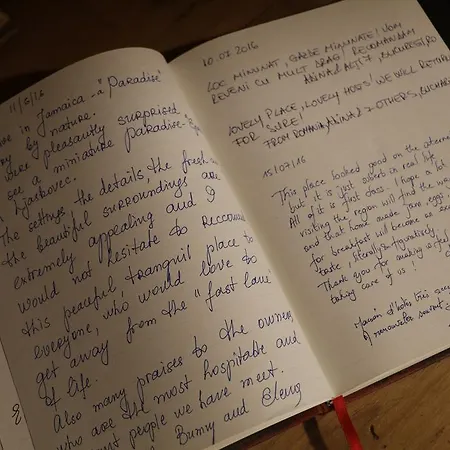 11/6/16
in Jamaica - a "Paradise"
by nature.
were pleasantly surprised
see a miniature paradise
in Njaskovec.
The settings the details the fresh
the beautiful surroundings are
extremely appealing and I
would not hesitate to reccom
this peaceful tranquil place to
everyone, who would love to
get away from the "fast lane"
of life.
Also many praises to the owner,
who are the most hospitable and
people we have meet.
Bunny and
10.07.2016
LOC MINUNAT, GAZDE MINUNATE! VOM
REVENI CU MULT DRAG! RECOMANDAM
ALINA & ALTI 7, BUCURESTI, RO
LOVELY PLACE, LOVELY HOSTS! WE WILL RETURN
FOR SURE!
FROM ROMANIA, ALINA & 7 OTHERS, BUCHAR
15/07/16
This place looked good on the
but it is just superb in real life.
All of it is first class. I hope a lot
visiting the region will find the way
and that home made jam, eggs
for breakfast will become an
taste, literally & figuratively.
Thank you for making
taking care of us!
Maison d'hôtes très